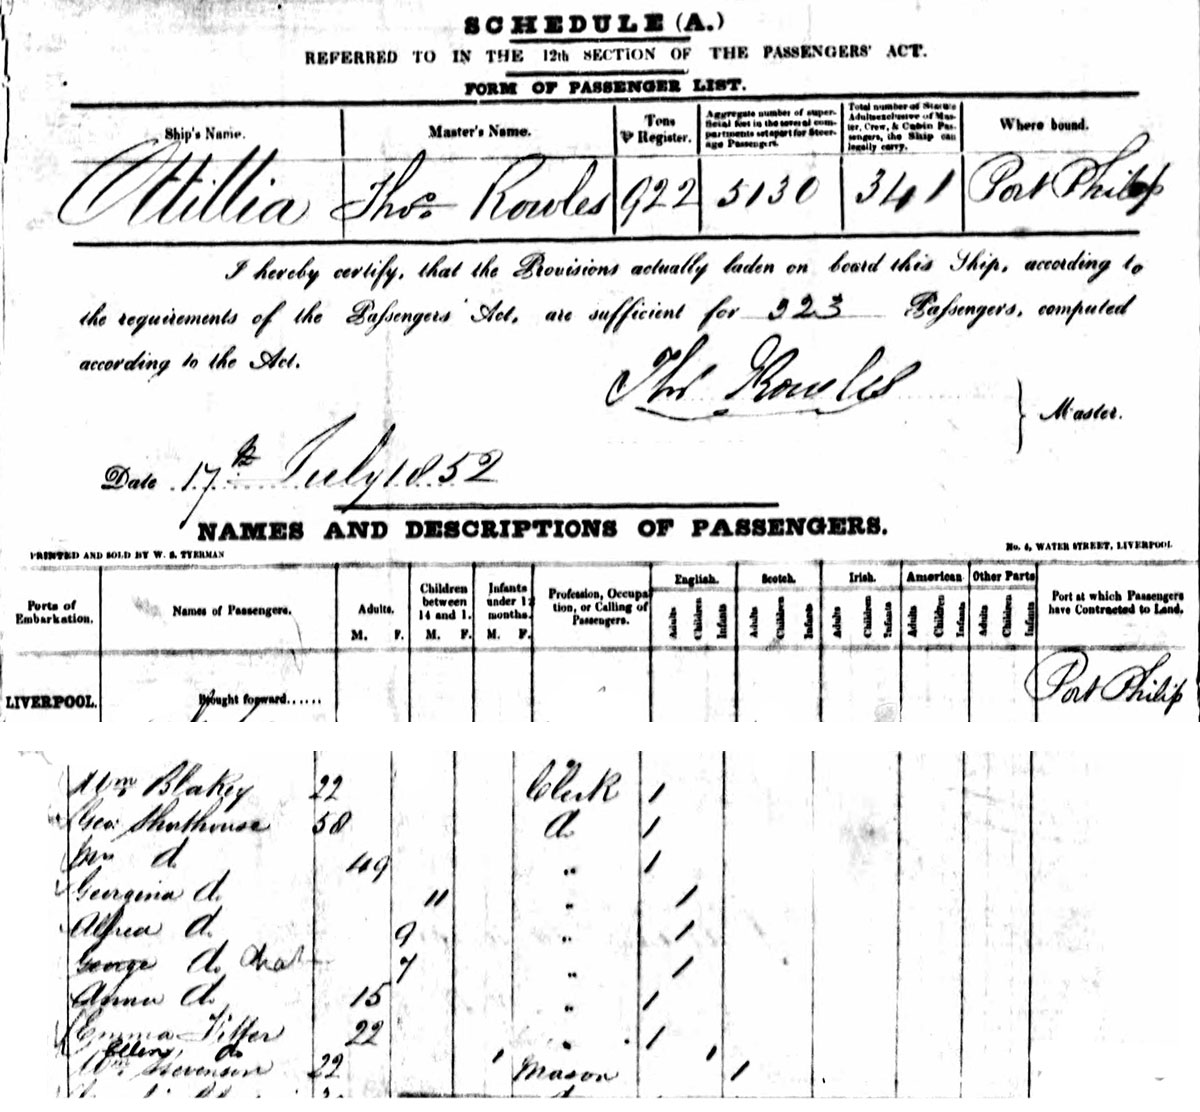 SCHEDULE (A.)
REFERRED TO IN THE 12th SECTION OF THE PASSENGERS' ACT.
FORM OF PASSENGER LIST.
Ship's Name. Master's Name. Tons ⅌ Register. Aggregate number of superficial feet in the several compartments set apart for Steerage Passengers. Total number of Statute Adults exclusive of Master, Crew, & Cabin Passengers, the Ship can legally carry. Where bound.
Attillia Thos. Rowles 922 5130 341 Port Philip
I hereby certify, that the Provisions actually laden on board this Ship, according to
the requirements of the Passengers' Act, are sufficient for 323 Passengers, computed
according to the Act.
Thos Rowles
Master.
Date 17th July 1852
NAMES AND DESCRIPTIONS OF PASSENGERS.
PRINTED AND SOLD BY W. S. TYERMAN No. 6, WATER STREET, LIVERPOOL
Ports of Embarkation. Names of Passengers. Adults. M. F. Children between 14 and 1. M. F. Infants under 12 months. M. F. Profession, Occupation, or Calling of Passengers. English. Adults Children Infants Scotch. Adults Children Infants Irish. Adults Children Infants American Adults Children Infants Other Parts Adults Children Infants Port at which Passengers have Contracted to Land.
LIVERPOOL. Brought forward...... Port Philip
Wm. Blakey 22 Clerk 1
Geo. Shuthouse 58 d. 1
Mrs d. 49 „ 1
Georgina d. 11 „ 1
Alfred d. 9 „ 1
George d. 7 „ 1
Anna d. 15 „ 1
Emma 22 „ 1
Ellen, do 1 1
Wm. Stevenson 22 Mason 1